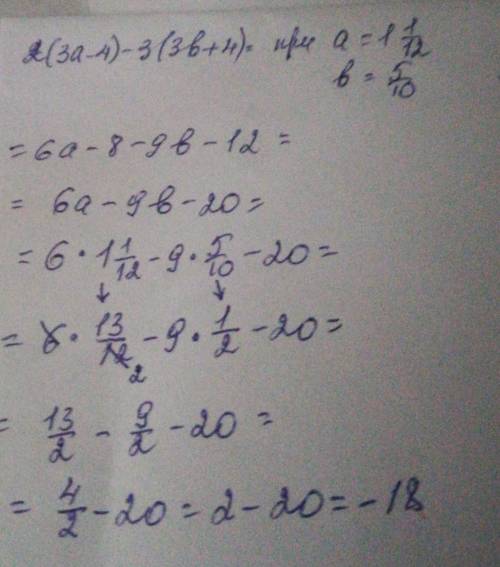 2(3a-4)-3(3b+4)= при a=1 1/12
b = 5/10
= 6a-8-9b-12 =
= 6a-9b-20=
= 6·1 1/12-9·5/10-20=
↓ ↓
= 6·13/12-9·1/2-20=
2
= 13/2 - 9/2 -20 =
= 4/2-20=2-20=-18